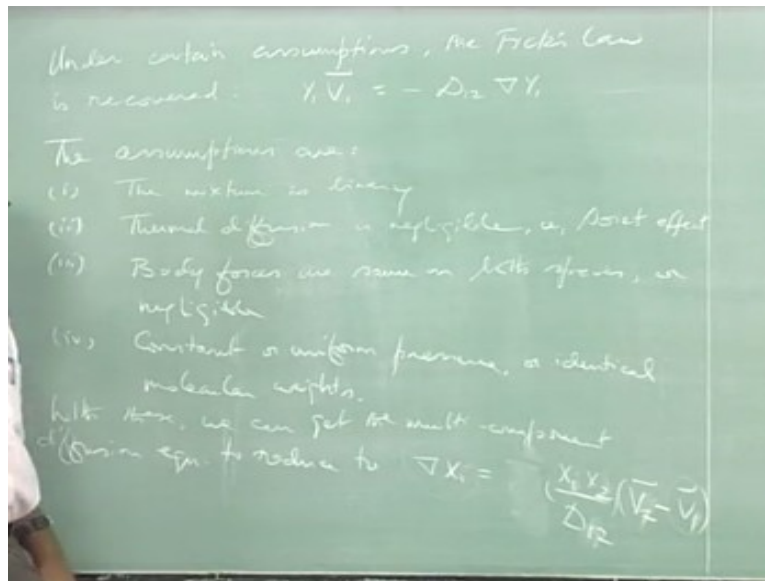 Under certain assumptions, the Fick's Law
is recovered: Y₁ V̄₁ = - D₁₂ ∇Y₁
The assumptions are:
(i) The mixture is binary
(ii) Thermal diffusion is negligible, ie, Soret effect
(iii) Body forces are same on both species, or
negligible
(iv) Constant or uniform pressure, or identical
molecular weights.
With these, we can get the multi-component
diffusion eqn. to reduce to ∇X₁ = (X₁ X₂ / D₁₂)(V̄₂ - V̄₁)